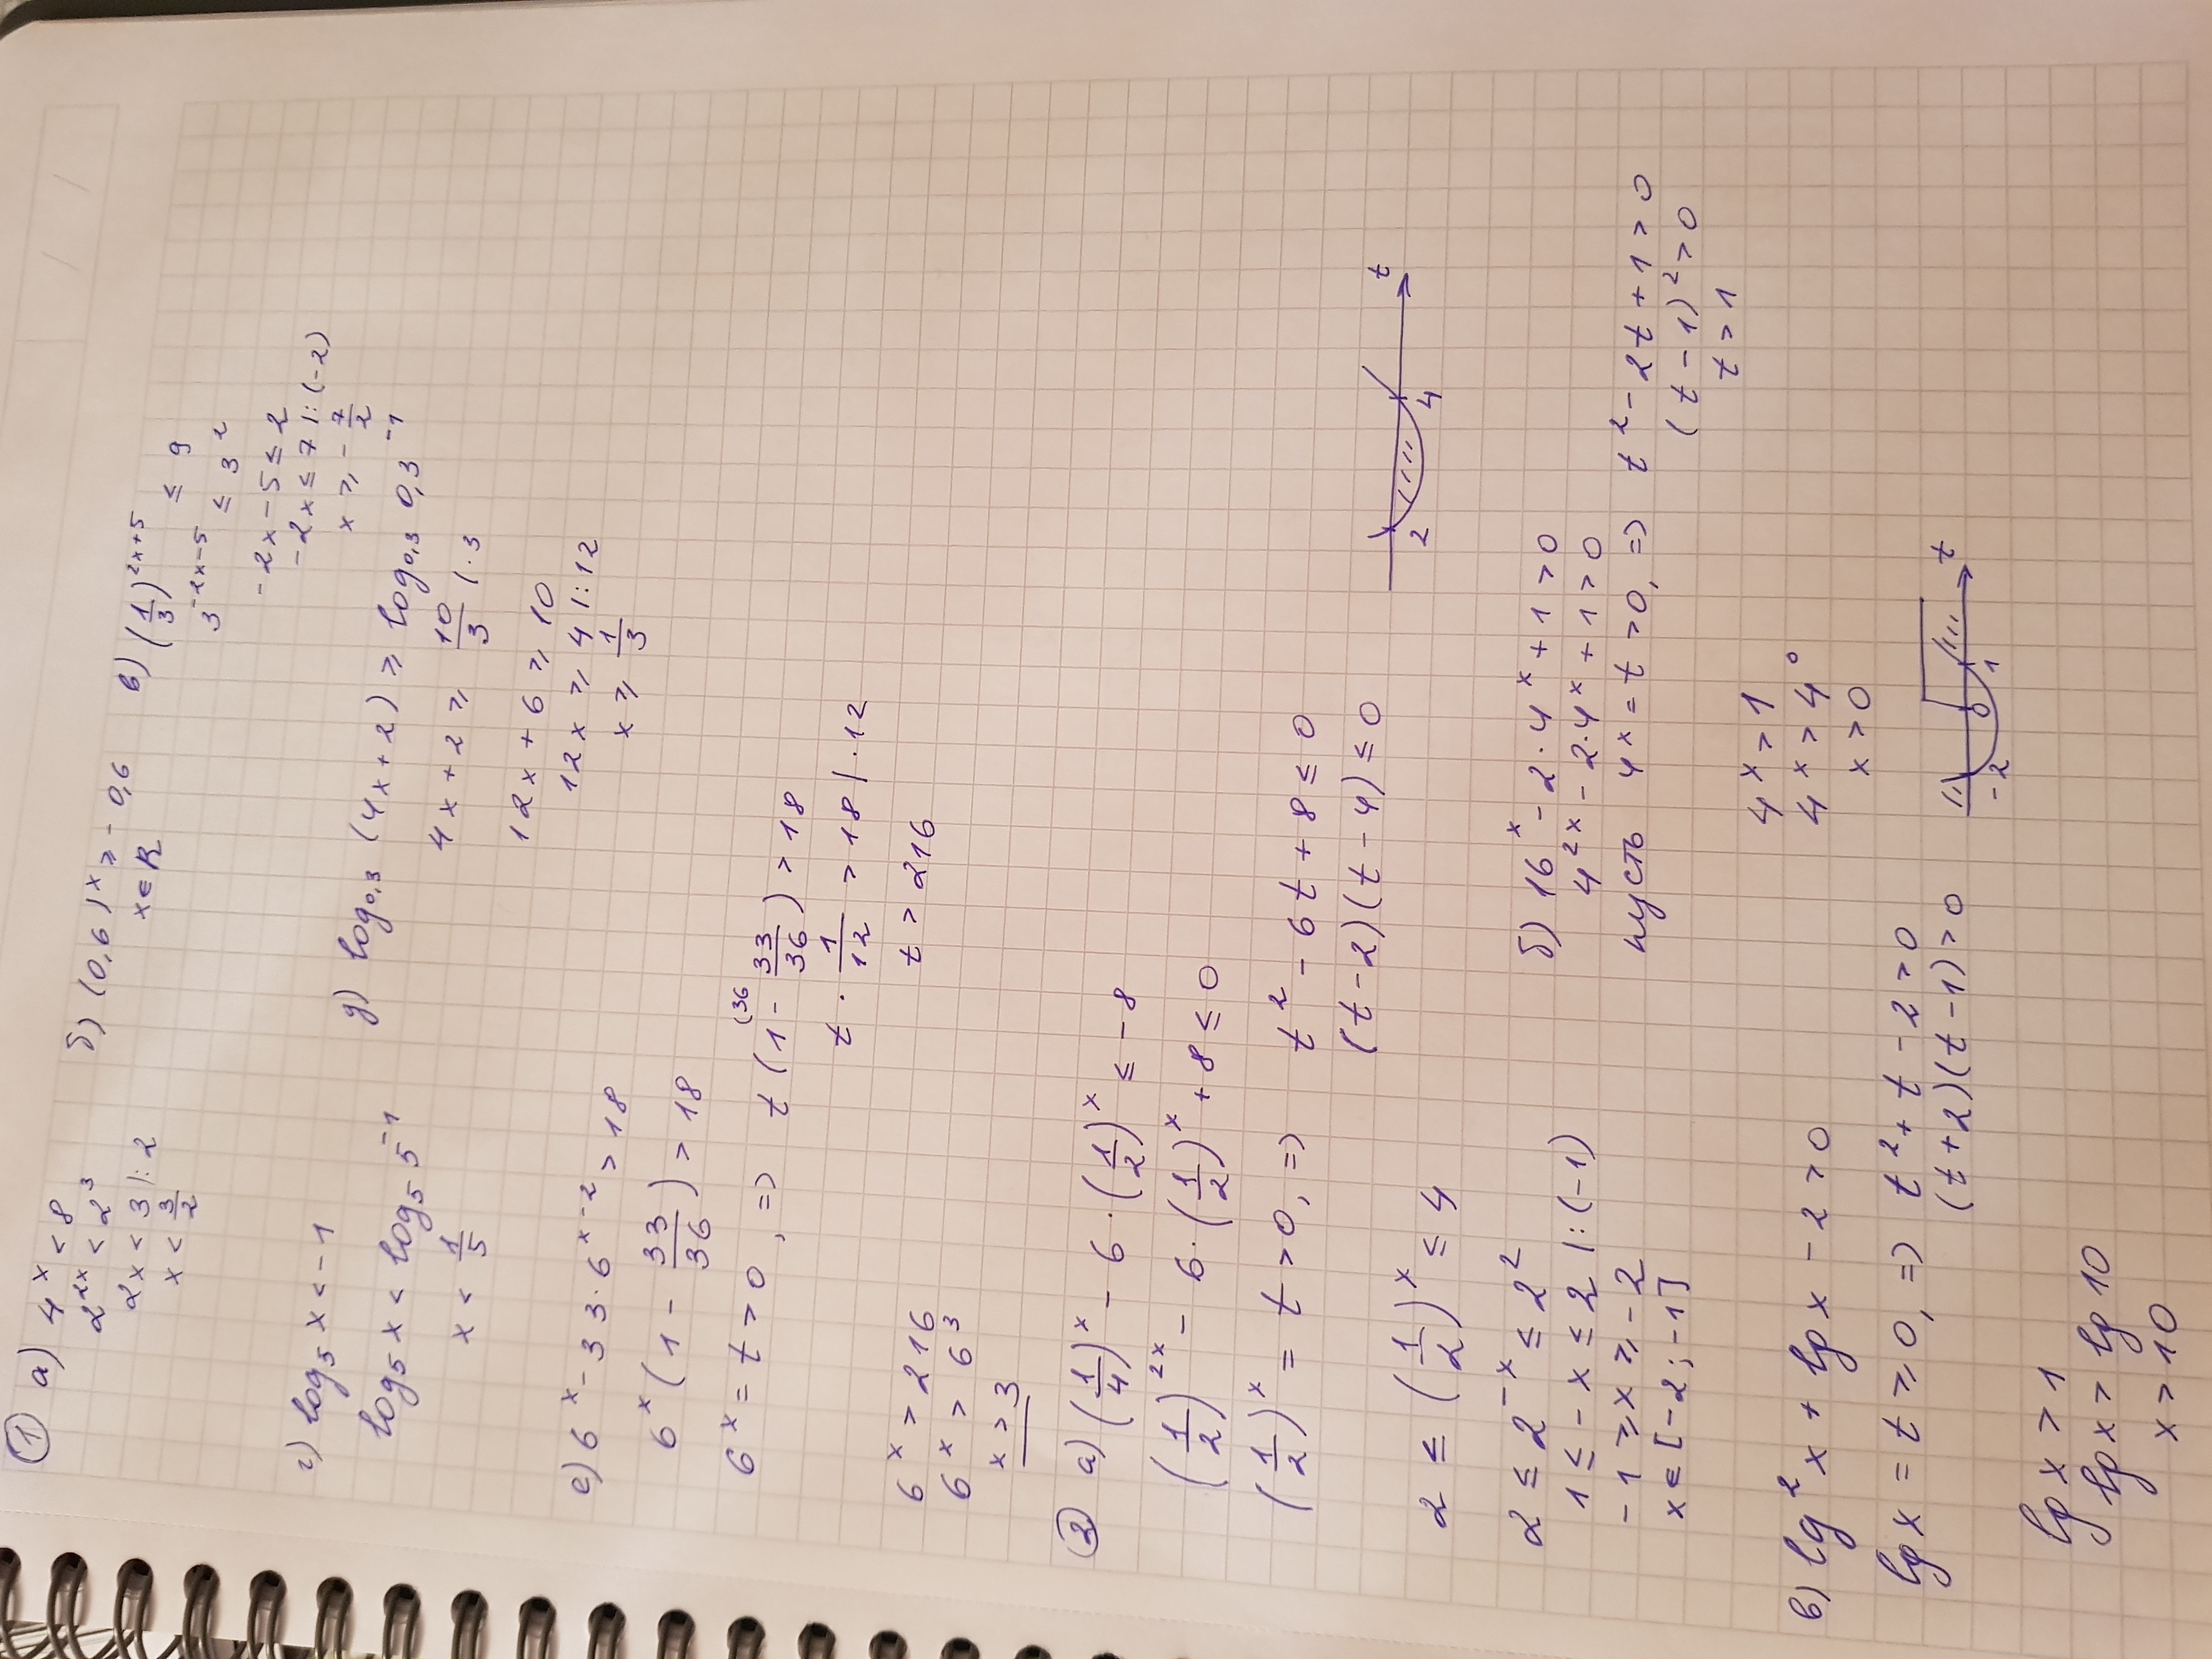 ① а) 4^x < 8
2^{2x} < 2^3
2x < 3 |: 2
x < 3/2
б) (0,6)^x ≥ -0,6
x ∈ R
в) (1/3)^{2x+5} ≤ 9
3^{-2x-5} ≤ 3^2
-2x - 5 ≤ 2
-2x ≤ 7 |: (-2)
x ≥ -7/2
г) log_5 x < -1
log_5 x < log_5 5^{-1}
x < 1/5
д) log_{0,3} (4x+2) ≥ log_{0,3} 0,3^{-1}
4x + 2 ≥ 10/3 |·3
12x + 6 ≥ 10
12x ≥ 4 |: 12
x ≥ 1/3
е) 6^x - 33·6^{x-2} > 18
6^x (1 - 33/36) > 18
6^x = t > 0, => t (1^{(36} - 33/36) > 18
t · 1/12 > 18 |·12
t > 216
6^x > 216
6^x > 6^3
x > 3
② а) (1/4)^x - 6·(1/2)^x ≤ -8
(1/2)^{2x} - 6·(1/2)^x + 8 ≤ 0
(1/2)^x = t > 0, => t^2 - 6t + 8 ≤ 0
(t-2)(t-4) ≤ 0
2 4 t
2 ≤ (1/2)^x ≤ 4
2 ≤ 2^{-x} ≤ 2^2
1 ≤ -x ≤ 2 |: (-1)
-1 ≥ x ≥ -2
x ∈ [-2; -1]
б) 16^x - 2·4^x + 1 > 0
4^{2x} - 2·4^x + 1 > 0
пусть 4^x = t > 0, => t^2 - 2t + 1 > 0
(t - 1)^2 > 0
t > 1
4^x > 1
4^x > 4^0
x > 0
в) lg^2 x + lg x - 2 > 0
lg x = t ≥ 0, => t^2 + t - 2 > 0
(t+2)(t-1) > 0
-2 0 1 t
lg x > 1
lg x > lg 10
x > 10